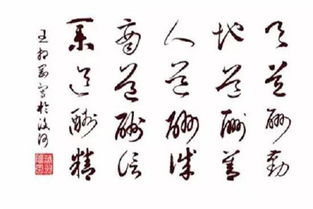 天道酬勤
地道酬善
人道酬诚
商道酬信
业道酬精